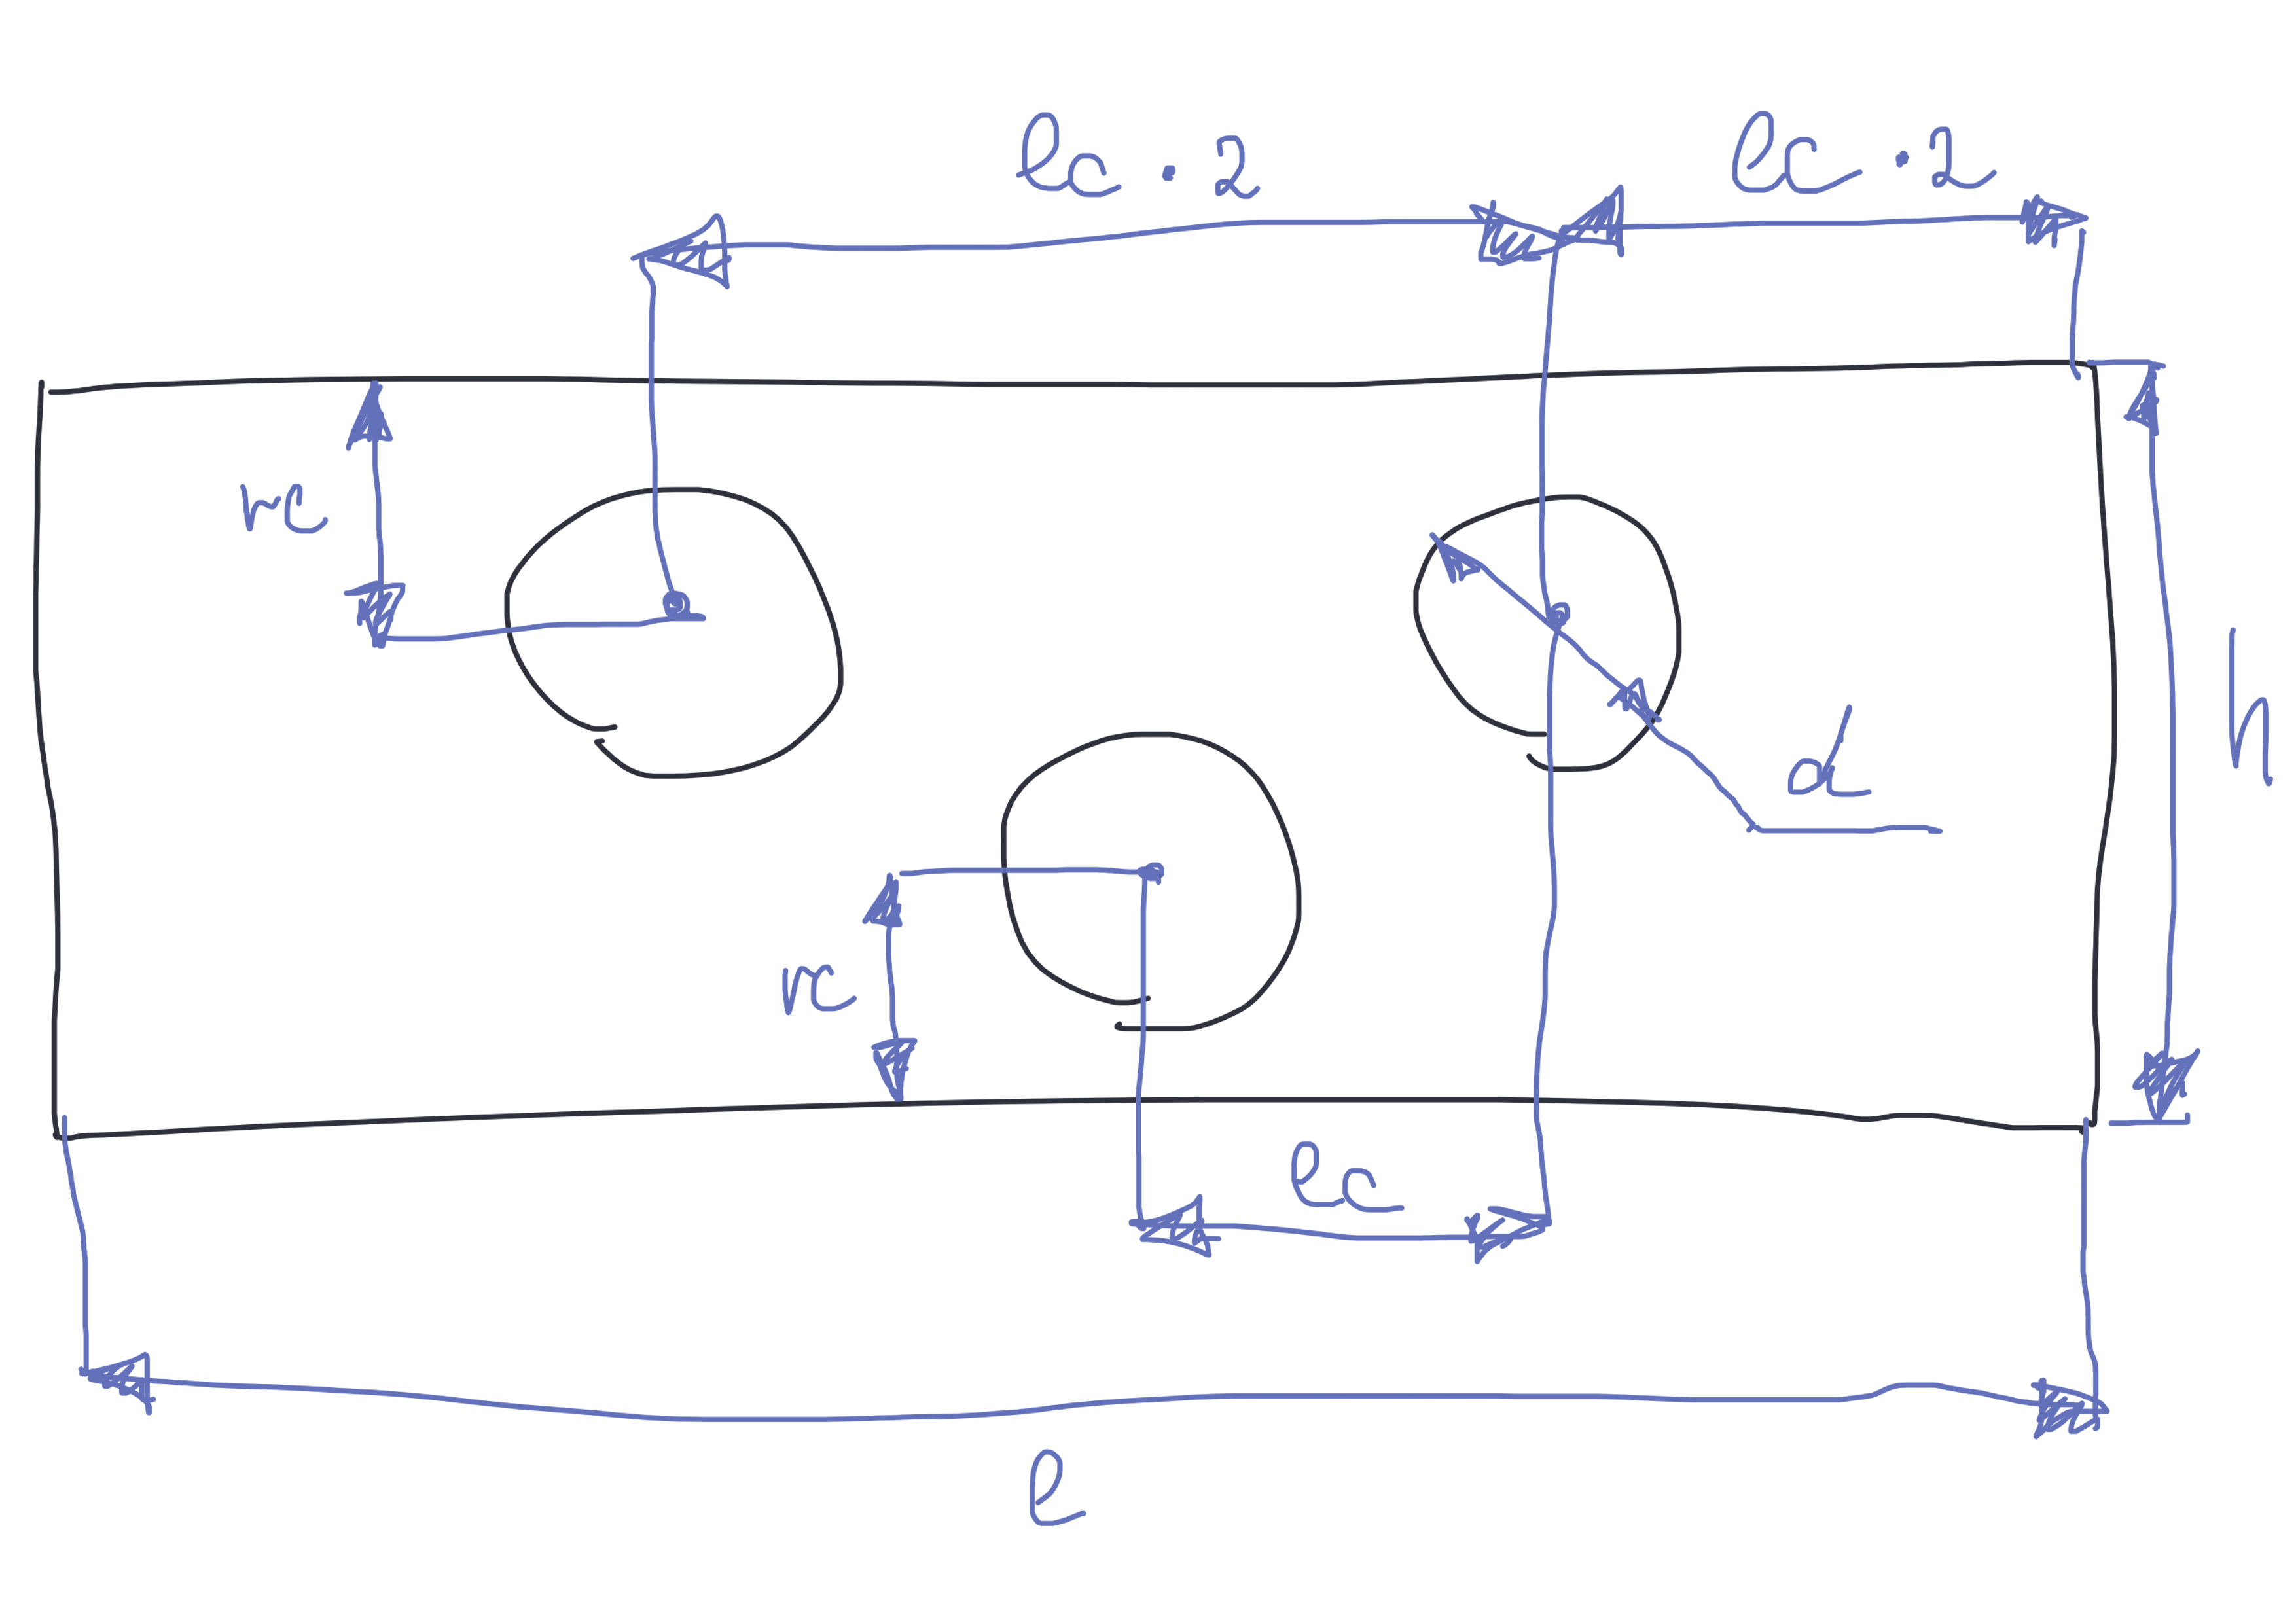 lc · 2
lc · 2
rc
h
d
rc
lc
l